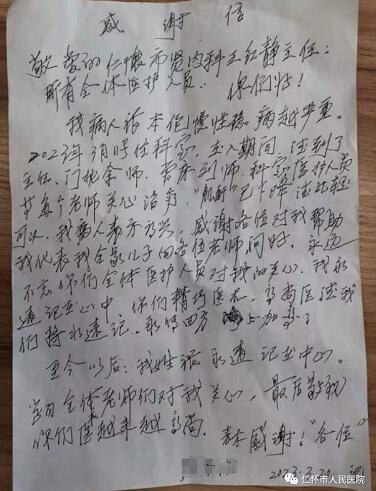 感谢信
敬爱的仁怀市肾内科王红静主任：
所有全体医护人员. 你们好！
我病人 慢性 病越严重.
2023年 月 号住科室, 入期间, 受到了
主任、门 老师、 老师, 科室医护人员
等每个老师关心治 . "肌酐"已下降
可以. 我病人表示高兴. 感谢各位对我帮助
我代表我全家儿子向各位老师问好. 永远
不忘你们全体医护人员对我的关心. 我永
远记在心中. 你们精巧医术, 高尚医德我
们将永远记. 永传四方
至今以后: 我 永远记在中心.
全体老师们对我关心, 最后敬祝
你们医 越来越高尚. 感谢！"各位"
2023.3.20
仁怀市人民医院